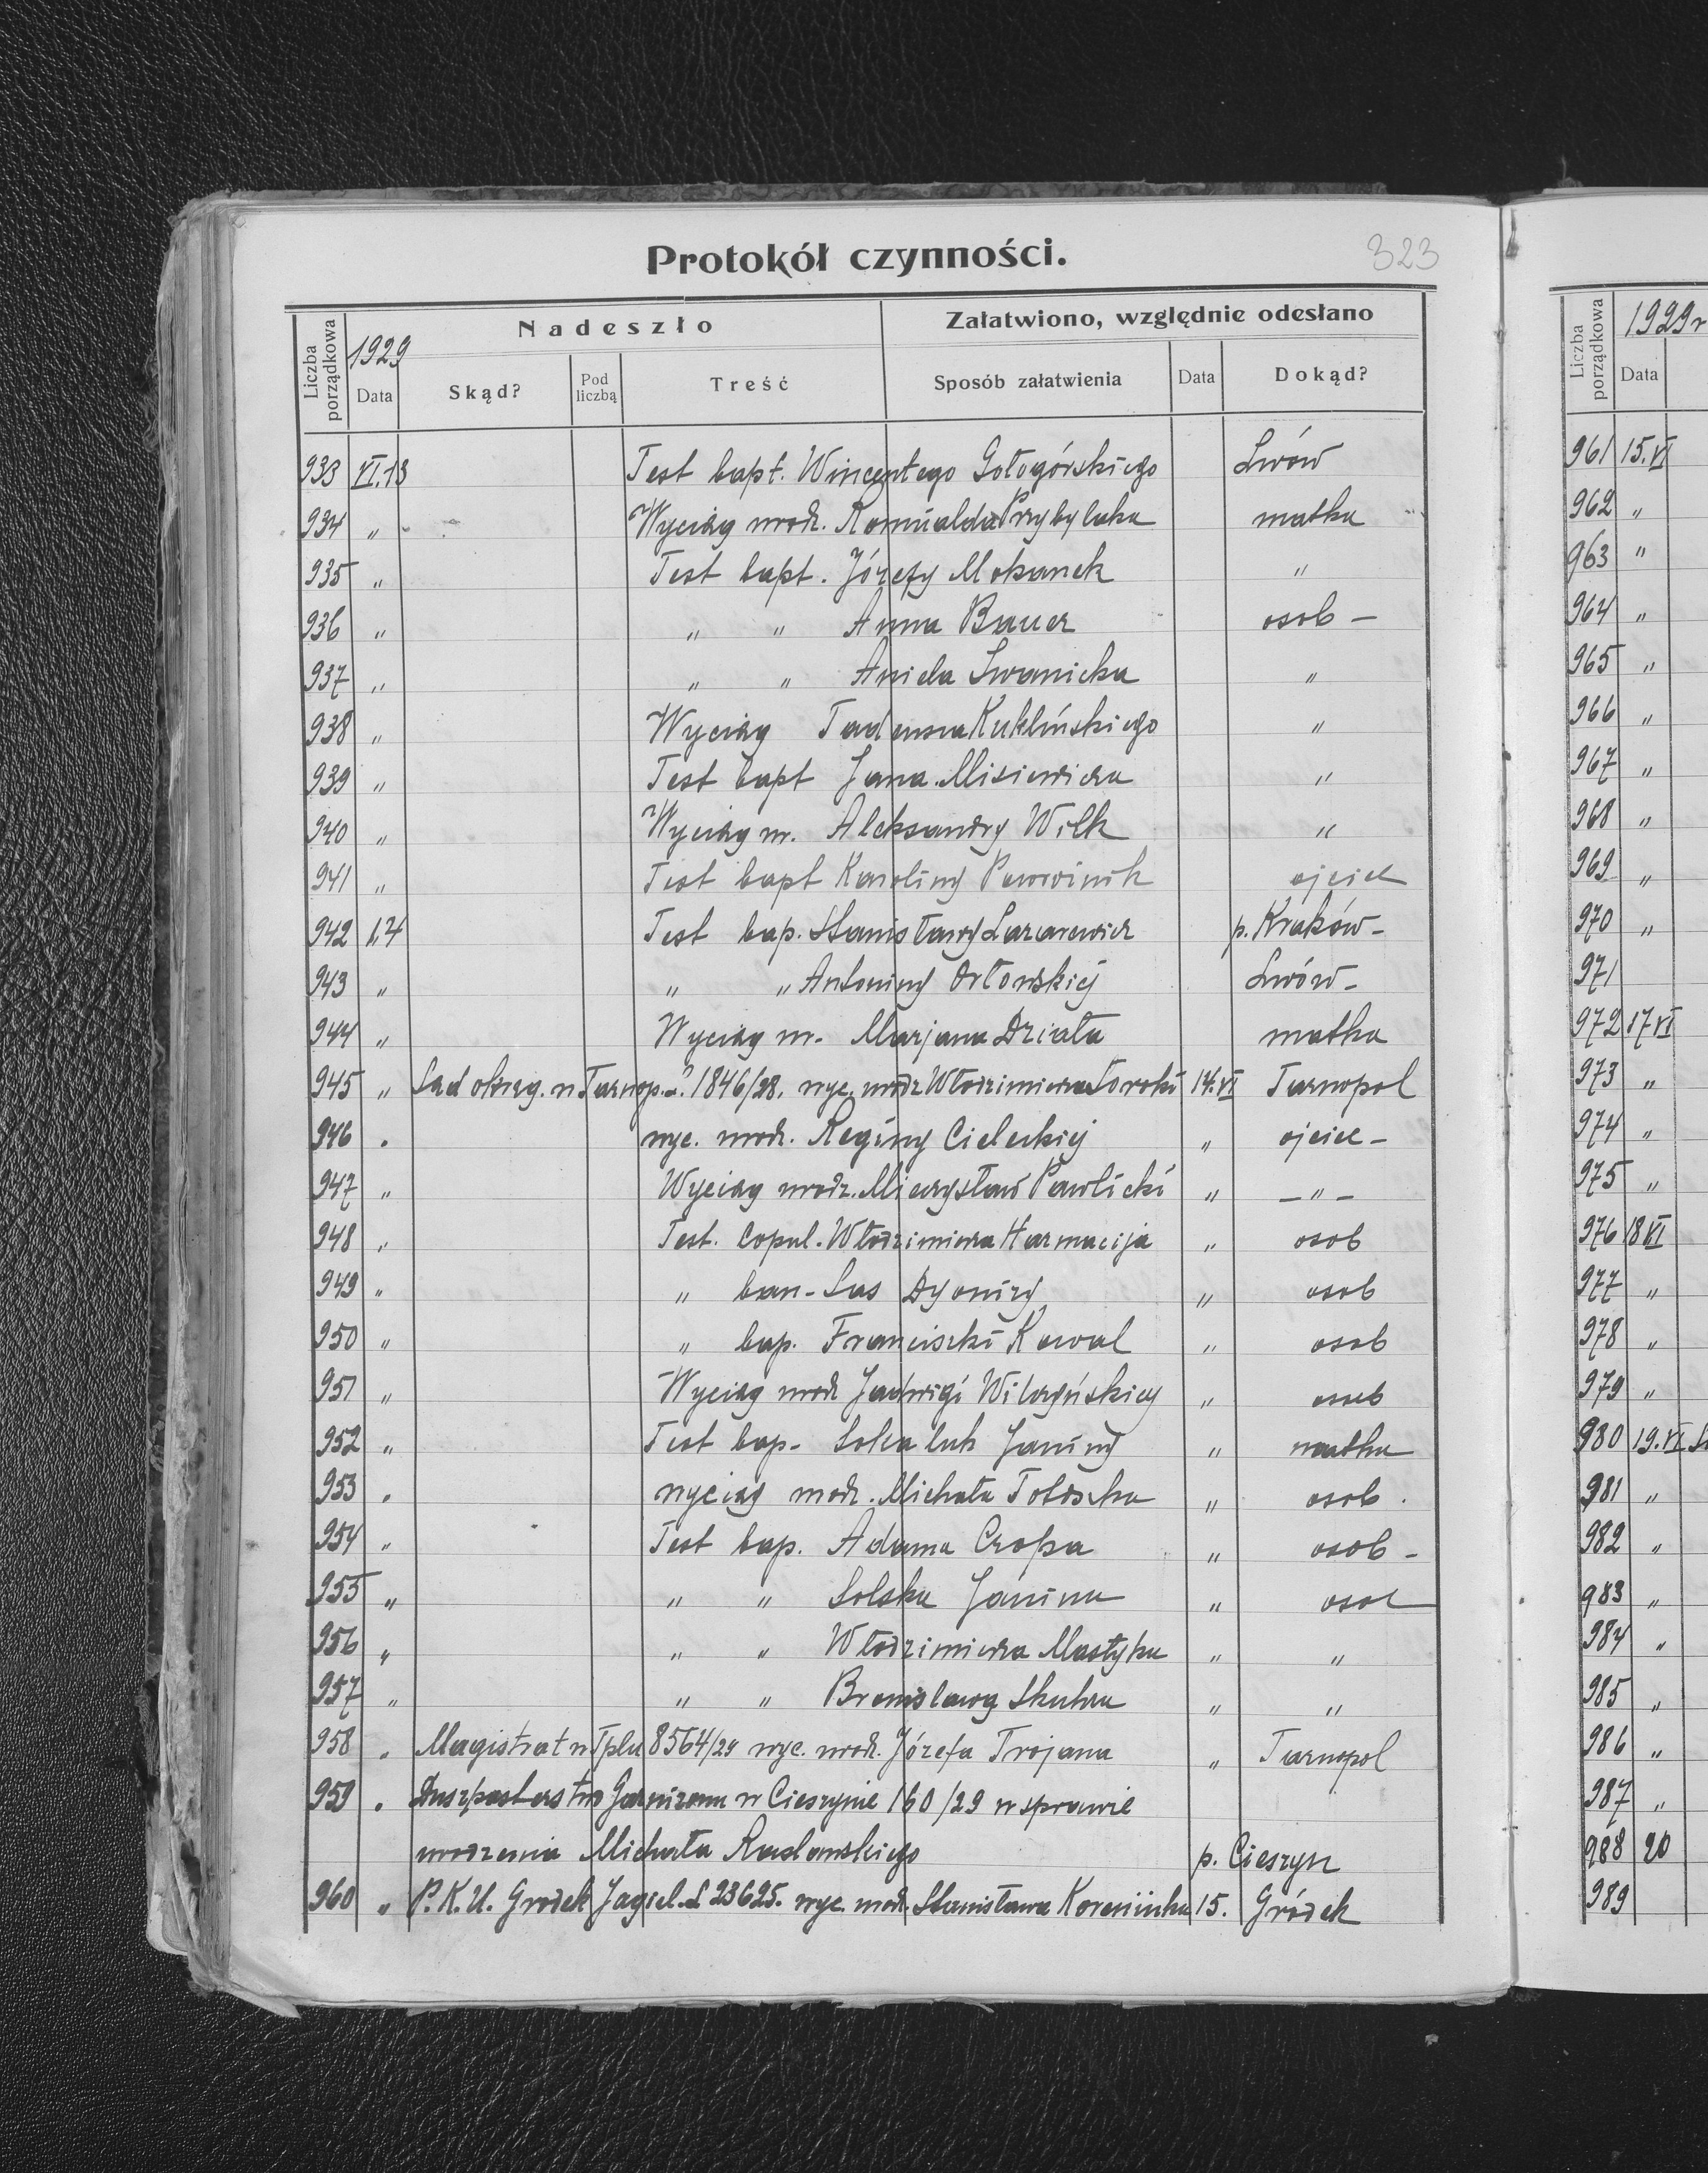 Protokół czynności.
323
Nadeszło
Załatwiono, względnie odesłano
Liczba porządkowa
1929
Data
Skąd?
Pod liczbą
Treść
Sposób załatwienia
Data
Dokąd?
933 VI.13 Test bapt. Wincentego Gołogórskiego Lwów
934 „ Wyciąg urodz. Romualda Przybyluka matka
935 „ Test bapt. Józefy Mokanek „
936 „ „ „ Anna Bauer osob –
937 „ „ „ Aniela Iwanicka „
938 „ Wyciąg Tadeusza Kuklińskiego „
939 „ Test bapt Jana Misiewicza „
940 „ Wyciąg ur. Aleksandry Wilk „
941 „ Test bapt Karoliny ojciec
942 14 Test bap. Stanisławy Lazarewicz p. Kraków –
943 „ „ „ Antoniny Orłowskiej Lwów –
944 „ Wyciąg ur. Marjana Działa matka
945 „ Sąd okręg. w Tarnop. L. 1846/28. wyc. urodz Włodzimierza 14.VI Tarnopol
946 „ wyc. urodz. Reginy Cieleckiej „ ojciec –
947 „ Wyciąg urodz. Mieczysław Pawlicki „ – „ –
948 „ Test. copul. Włodzimierza Harmacija „ osob
949 „ „ ban. Sas Dyonizy „ osob
950 „ „ bap. Franciszki Kowal „ osob
951 „ Wyciąg urodz Jadwigi Wilczyńskiej „ osob
952 „ Test bap. Sokaluk Janiny „ matka
953 „ wyciąg urodz. Michała „ osob.
954 „ Test bap. Adama Czopa „ osob –
955 „ „ „ Solska Janina „ osob
956 „ „ „ Włodzimierza Mastyka „ „
957 „ „ „ Bronisława Skubra „ „
958 „ Magistrat w Tplu 8564/29 wyc. urodz. Józefa Trojana „ Tarnopol
959 „ Duszpasterstwo Garnizonu w Cieszynie 160/29 w sprawie
urodzenia Michała Raslawskiego p. Cieszyn
960 „ P.K.U. Grodek Jagiel. L 23625. wyc. urodz. Stanisława 15. Gródek
Liczba porządkowa
1929 r
Data
961 15.VI
962 „
963 „
964 „
965 „
966 „
967 „
968 „
969 „
970 „
971
972 17 VI
973 „
974 „
975 „
976 18 VI
977 „
978 „
979 „
980 19.VI
981 „
982 „
983 „
984 „
985 „
986 „
987 „
988 20
989